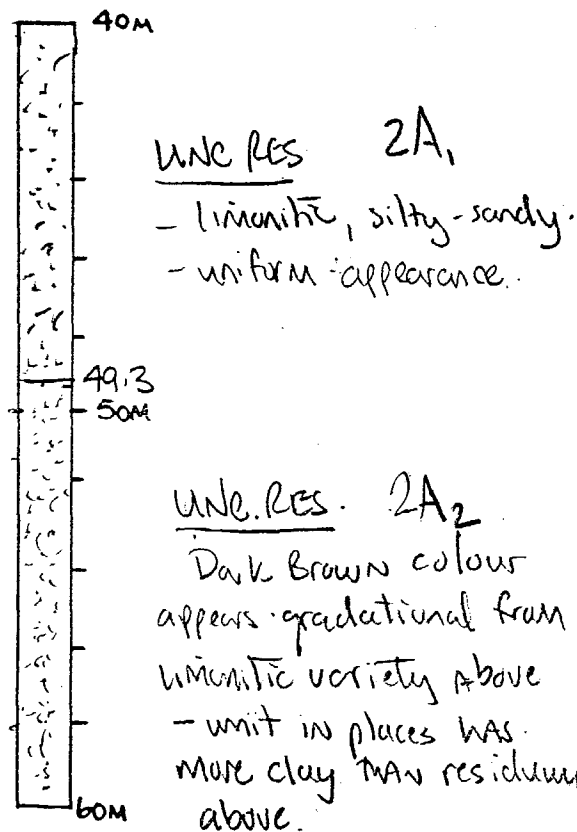 40M
UNC RES 2A1
- limonitic, silty-sandy.
- uniform appearance.
49.3
50M
UNC. RES. 2A2
Dark Brown colour
appears gradational from
limonitic variety above
- unit in places has
more clay than residuum
above.
60M